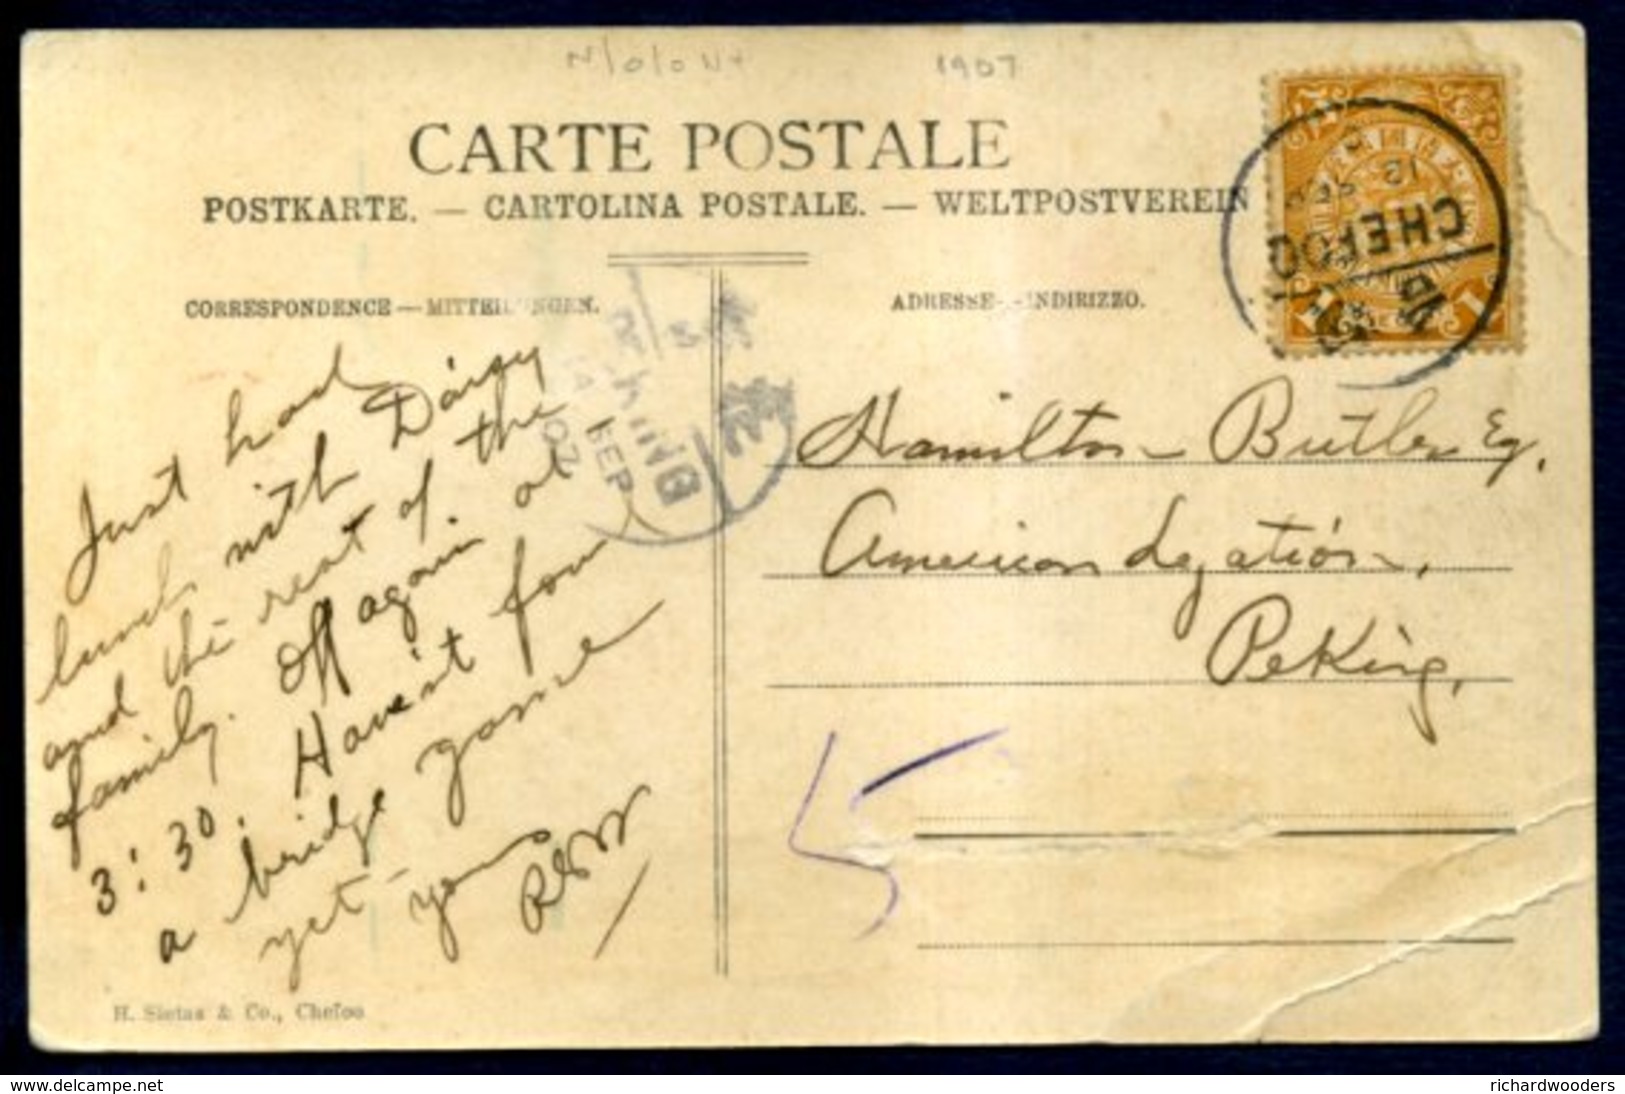 1907
CARTE POSTALE
POSTKARTE. — CARTOLINA POSTALE. — WELTPOSTVEREIN
CORRESPONDENCE — MITTEILUNGEN.
ADRESSE — INDIRIZZO.
CHEFOO
12 SEP
1
1
PEKING
SEP
07
Just had
lunch with Daisy
and the rest of the
family. Off again at
3:30. Haven't found
a bridge game
yet — yours
Hamilton Butler Esq.
American Legation,
Peking,
5
H. Sietas & Co., Chefoo
www.delcampe.net
richardwooders